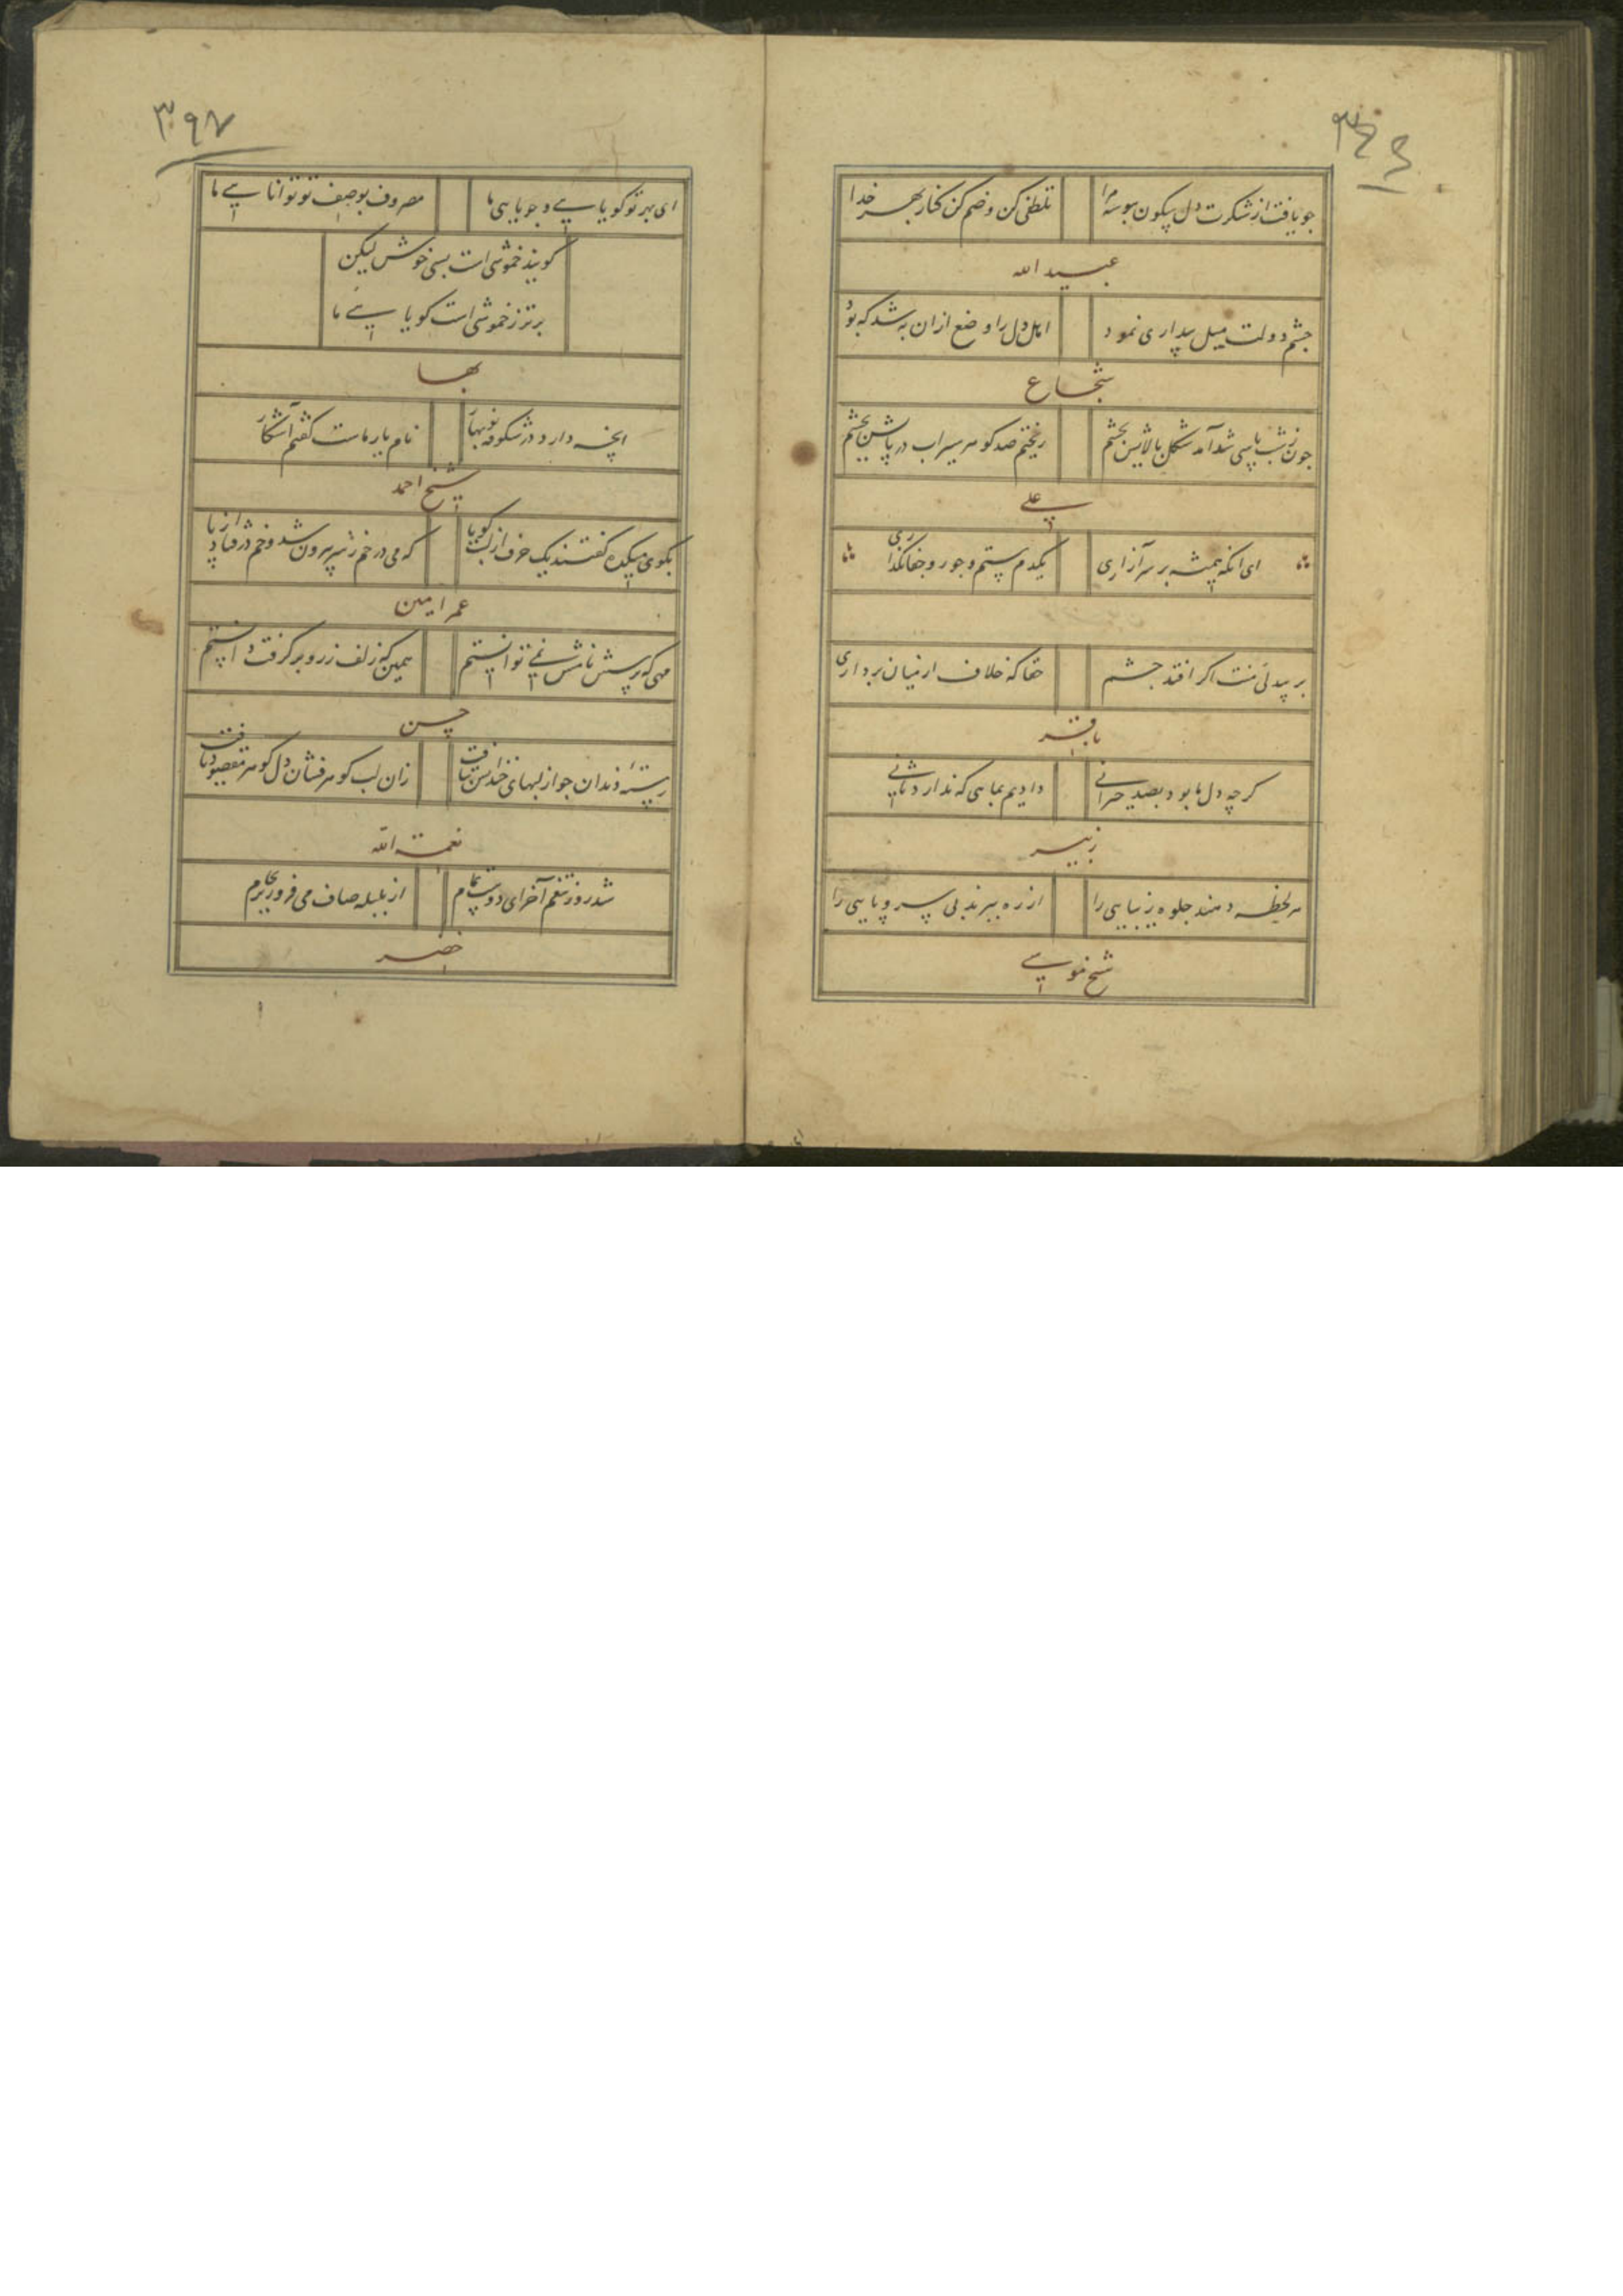 جو یافت از شکرت دل سکون ببوسه مرا
تلطفی کن و ضم کن کنار بهر خدا
عبید الله
چشم دولت میل بیداری نمود
اهل دل را وضع ازان به شد که بود
شجاع
چون ز شب پاسی شد آمد شکل بالایش بچشم
ریختم صد کوهر سیراب در پایش بچشم
علی
ای انکه همیشه بر سر آزاری
یکدم ستم و جور و جفا نکذاری
بر بیدلی منت اکر افتد چشم
حقا که خلاف از میان برداری
باقر
کرچه دل ما بود بصد حیرانی
دادیم بماهی که ندارد ثانی
زبیر
هر لحظه دهند جلوه زیبایی را
از ره ببرند بی سر و پایی را
شیخ موسی
۳۹۷
ای بهر تو کویایی و جویایی ما
مصروف بوصف تو توانایی ما
کویند خموشی است بسی خوش لیکن
برتر ز خموشی است کویایی ما
بها
انچه دارد در شکوفه نوبهار
نام یار ماست کفتم آشکار
شیخ احمد
بکوی میکده کفتند یک حرف از لب کویا
که می در خم ز سر بیرون شد و خم در فتاد از پا
عمر امین
مهی که پرسش نامش نمی توانستم
همین که زلف ز رو بر کرفت دانستم
حسن
رسته دندان چو از لبهای خندانش بتافت
زان لب کوهر فشان دل کوهر مقصود یافت
نعمت الله
شد روز تنعم آخر ای دوست تمام
از بلبله صاف می فروریز بجام
خضر